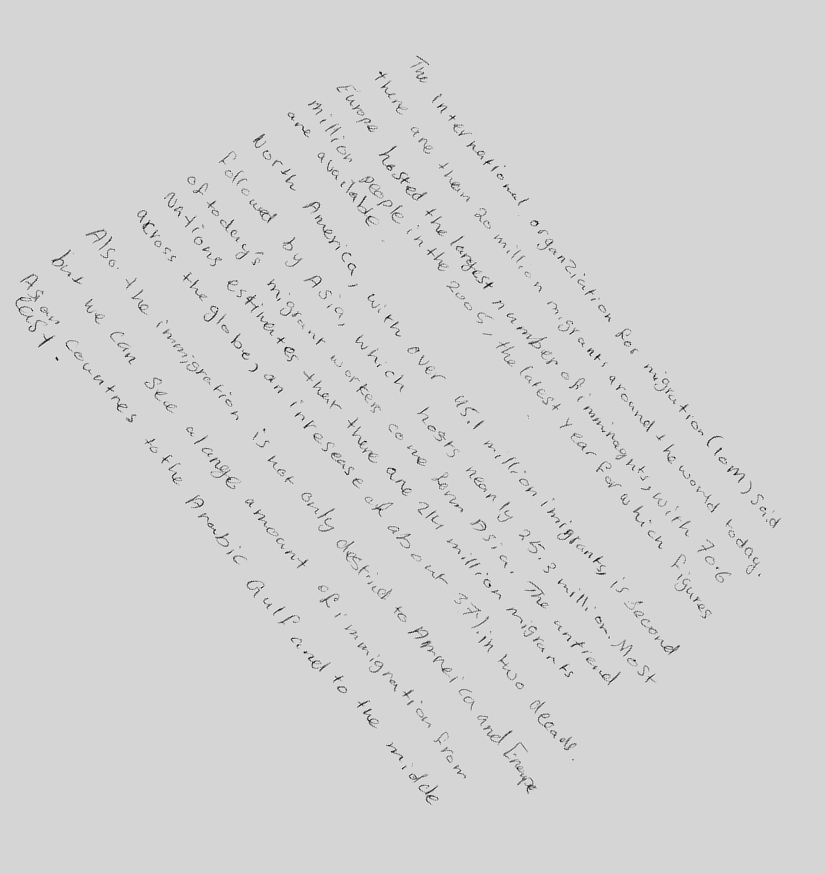 The international organziation for migration (IOM) said
there are then 20 million migrants around the world today.
Europe hosted the largest number of imminagnts, with 70.6
million people in the 2005, the latest year for which figures
are available.
North America, with over 45.1 million imigrants, is second
followed by Asia, which hosts nearly 25.3 million. Most
of today's migrant workers come form Asia. The untrend
Nations estimates that there are 214 million migrants
across the globe, an inresease of about 37% in two decads.
Also. the immigration is not only destind to Amreica and Europe
but we can see alange amount of immigration from
Asian countres to the Arabic Gulf and to the midde
east.